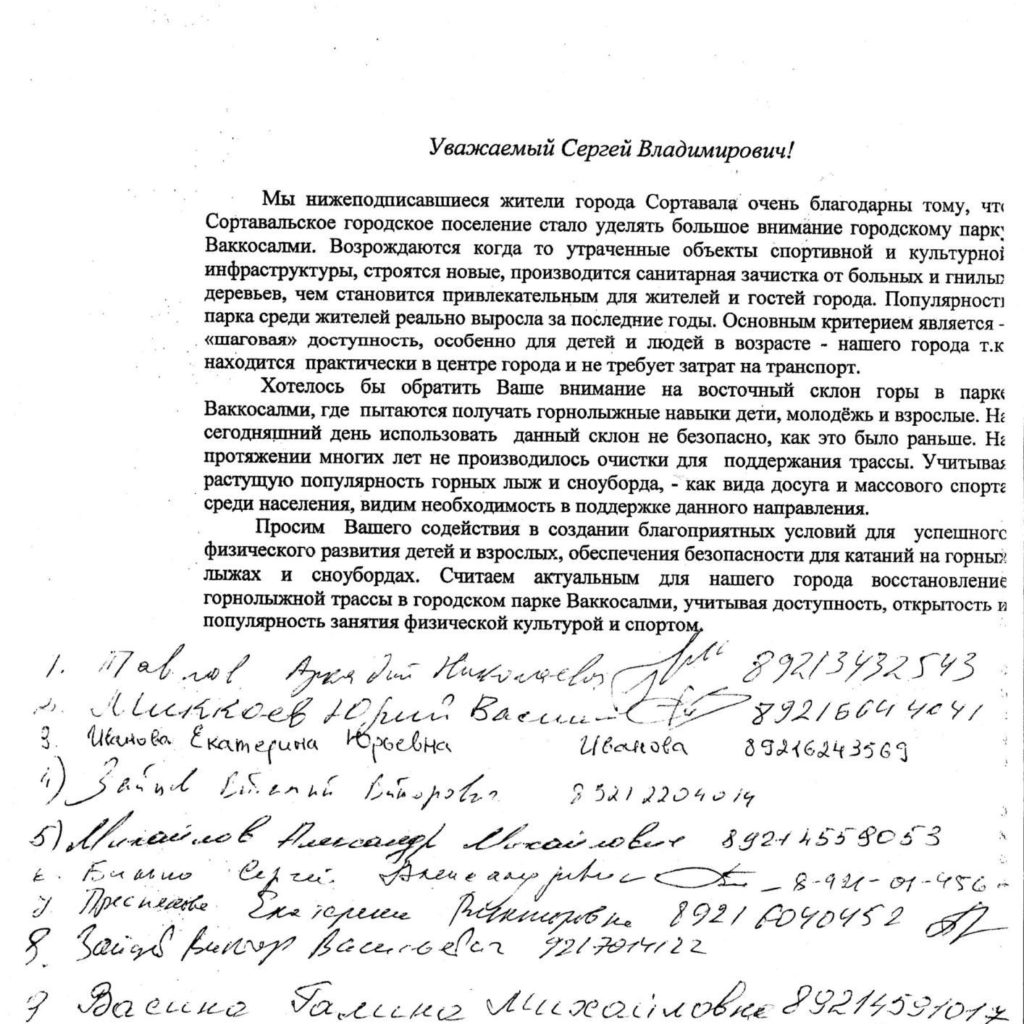 Уважаемый Сергей Владимирович!
Мы нижеподписавшиеся жители города Сортавала очень благодарны тому, что
Сортавальское городское поселение стало уделять большое внимание городскому парку
Ваккосалми. Возрождаются когда то утраченные объекты спортивной и культурной
инфраструктуры, строятся новые, производится санитарная зачистка от больных и гнилых
деревьев, чем становится привлекательным для жителей и гостей города. Популярность
парка среди жителей реально выросла за последние годы. Основным критерием является -
«шаговая» доступность, особенно для детей и людей в возрасте - нашего города т.к
находится практически в центре города и не требует затрат на транспорт.
Хотелось бы обратить Ваше внимание на восточный склон горы в парке
Ваккосалми, где пытаются получать горнолыжные навыки дети, молодёжь и взрослые. На
сегодняшний день использовать данный склон не безопасно, как это было раньше. На
протяжении многих лет не производилось очистки для поддержания трассы. Учитывая
растущую популярность горных лыж и сноуборда, - как вида досуга и массового спорта
среди населения, видим необходимость в поддержке данного направления.
Просим Вашего содействия в создании благоприятных условий для успешного
физического развития детей и взрослых, обеспечения безопасности для катаний на горных
лыжах и сноубордах. Считаем актуальным для нашего города восстановление
горнолыжной трассы в городском парке Ваккосалми, учитывая доступность, открытость и
популярность занятия физической культурой и спортом.
1. Павлов Аркадий Николаевич 89213432543
Миккоев Юрий 89216644041
3. Иванова Екатерина Юрьевна Иванова 89216243569
4) 89212204014
5) Михайлов Александр Михайлович 89214559053
Сергей Александрович 8-921-01-456-
Екатерина Викторовна 89216040452
8. Зайцев Виктор Васильевич 9217014122
9 Васина Галина Михайловна 89214591017